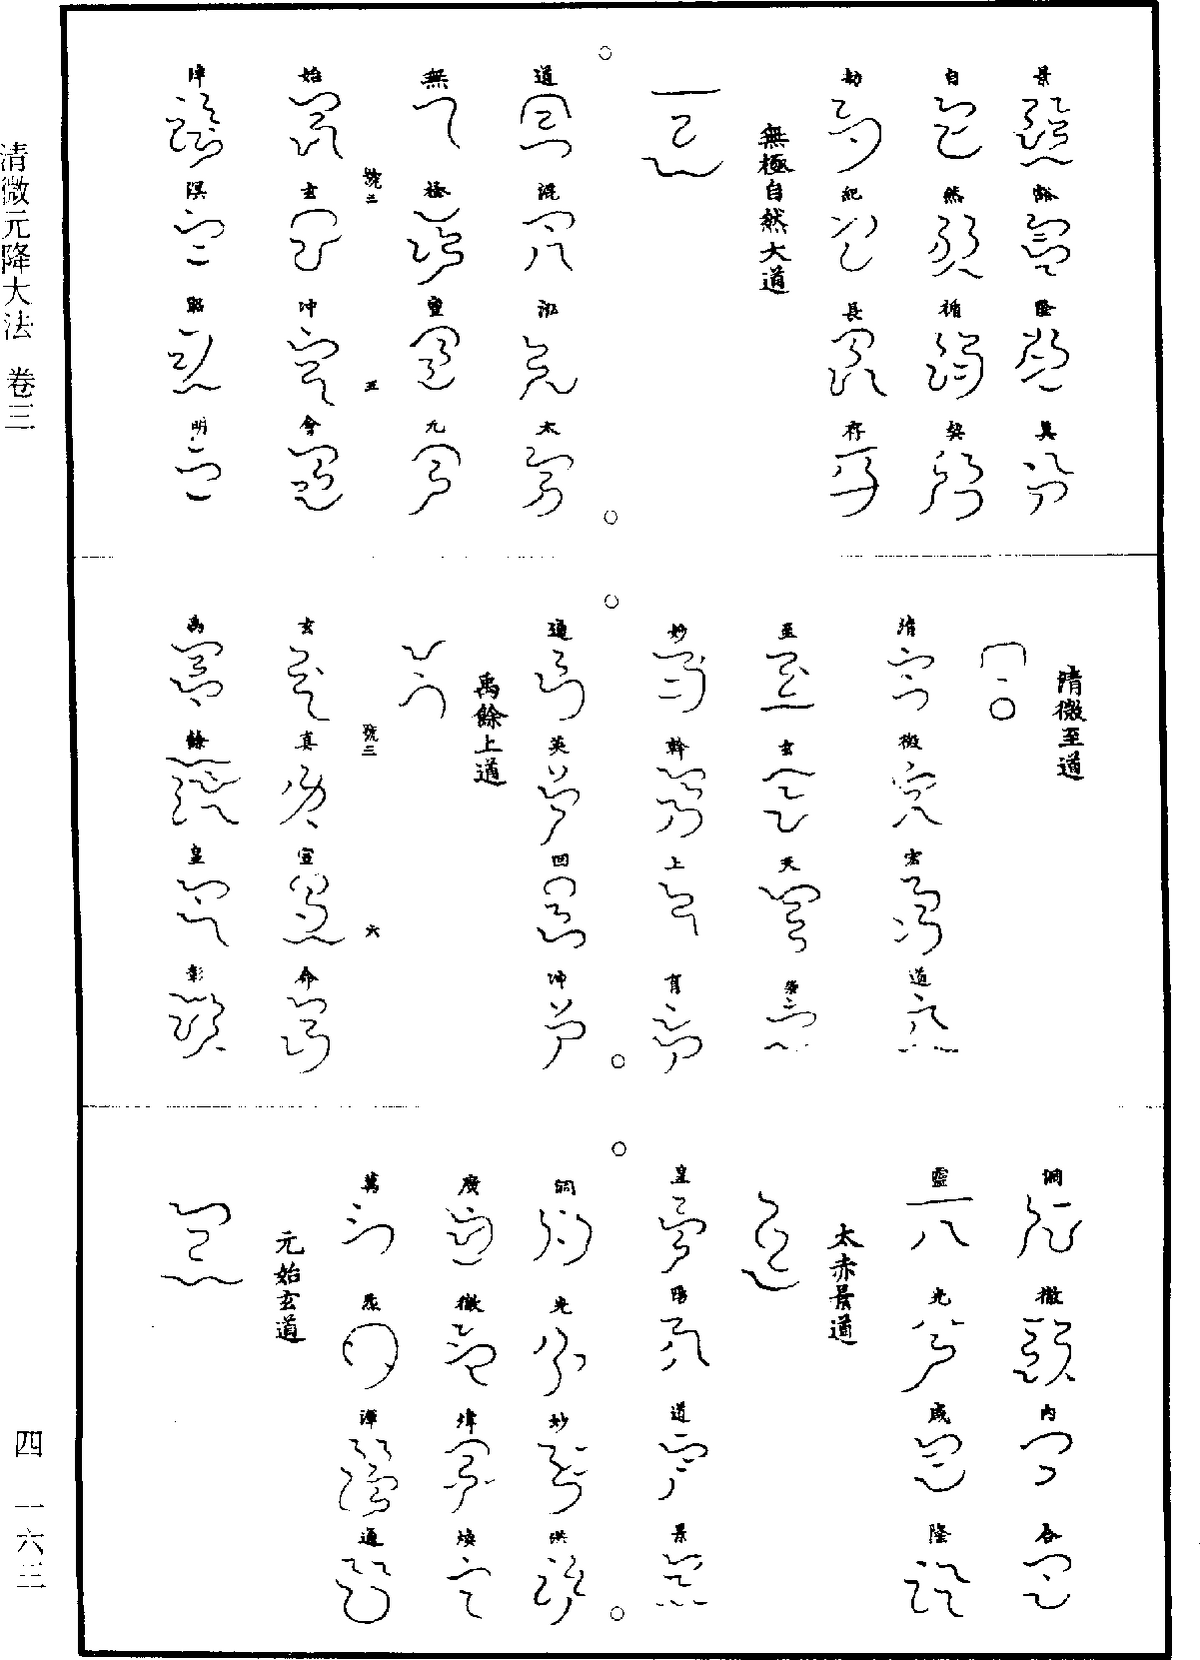 景 豁 隆 真
自 然 循 契
劫 紀 長 存
無極自然大道
道 混 泓 太
無 極 靈 九
號二 五
始 玄 沖 會
溟 昭 明
清微至道
清 微 宏 道
至 玄 天
妙 幹 上 育
通 英 回 沖
禹餘上道
號三 六
玄 真 宣 命
禹 餘 皇 彰
洞 徹 內
靈 光 咸 隆
太赤景道
皇 陽 道 景
洞 光 妙 洪
廣 徹 煒 煥
萬 炁 渾 通
元始玄道
清微元降大法 卷三
四 一六三